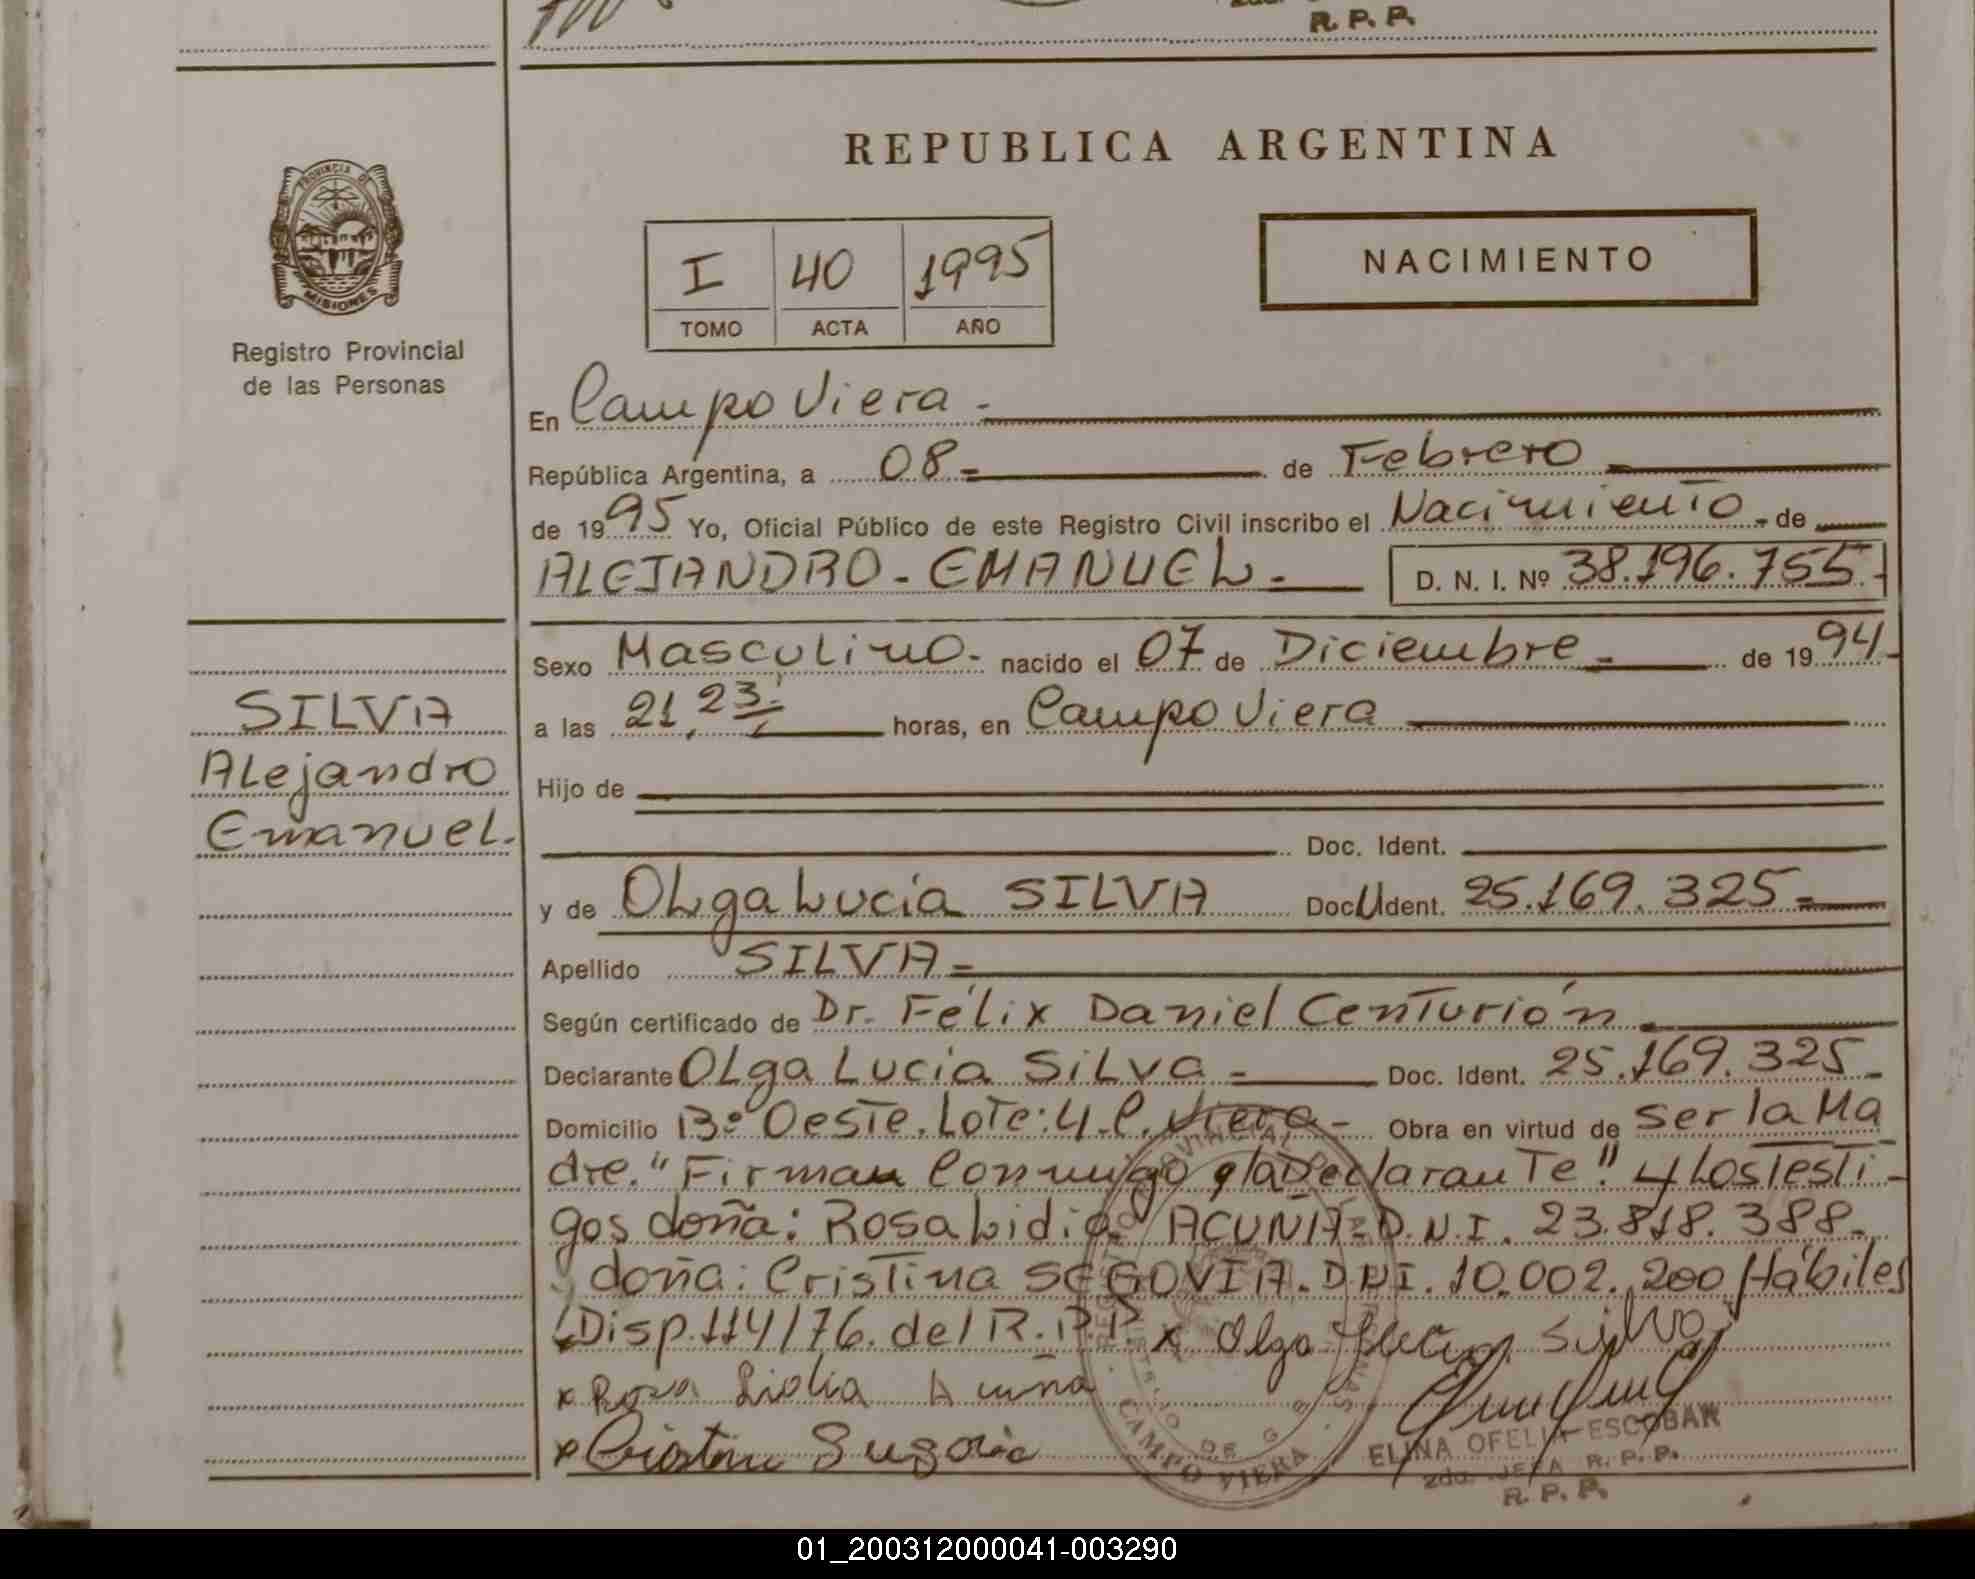 R. P. P.
PROVINCIA DE
MISIONES
Registro Provincial
de las Personas
SILVA
Alejandro
Emanuel.
REPUBLICA ARGENTINA
I 40 1995
TOMO ACTA AÑO
NACIMIENTO
En Campo Viera -
República Argentina, a 08 = de Febrero
de 1995 Yo, Oficial Público de este Registro Civil inscribo el Nacimiento - de
ALEJANDRO - EMANUEL - D. N. I. Nº 38.196.755 -
Sexo Masculino - nacido el 07 de Diciembre - de 1994 -
a las 21,23 horas, en Campo Viera
Hijo de
Doc. Ident.
y de Olga Lucia SILVA Doc. Ident. 25.169.325 =
Apellido SILVA =
Según certificado de Dr. Félix Daniel Centurión
Declarante Olga Lucia Silva - Doc. Ident. 25.169.325 -
Domicilio 13º Oeste. Lote: 4 - C. Viera - Obra en virtud de ser la Ma
dre." Firman Conmigo y la Declarante" y Los Testi -
gos doña: Rosa Lidia ACUNA - D.N.I. 23.818.388 -
doña: Cristina SEGOVIA. DNI. 10.002.200 Hábiles
(Disp. 114/76. del R.P.P x Olga Lucia Silva
x Rosa Lidia Acuna
x Cristina Segovia
CAMPO VIERA
ELINA OFELIA ESCOBAR
2da. JEFA R. P. P.
R. P. P.
01_200312000041-003290